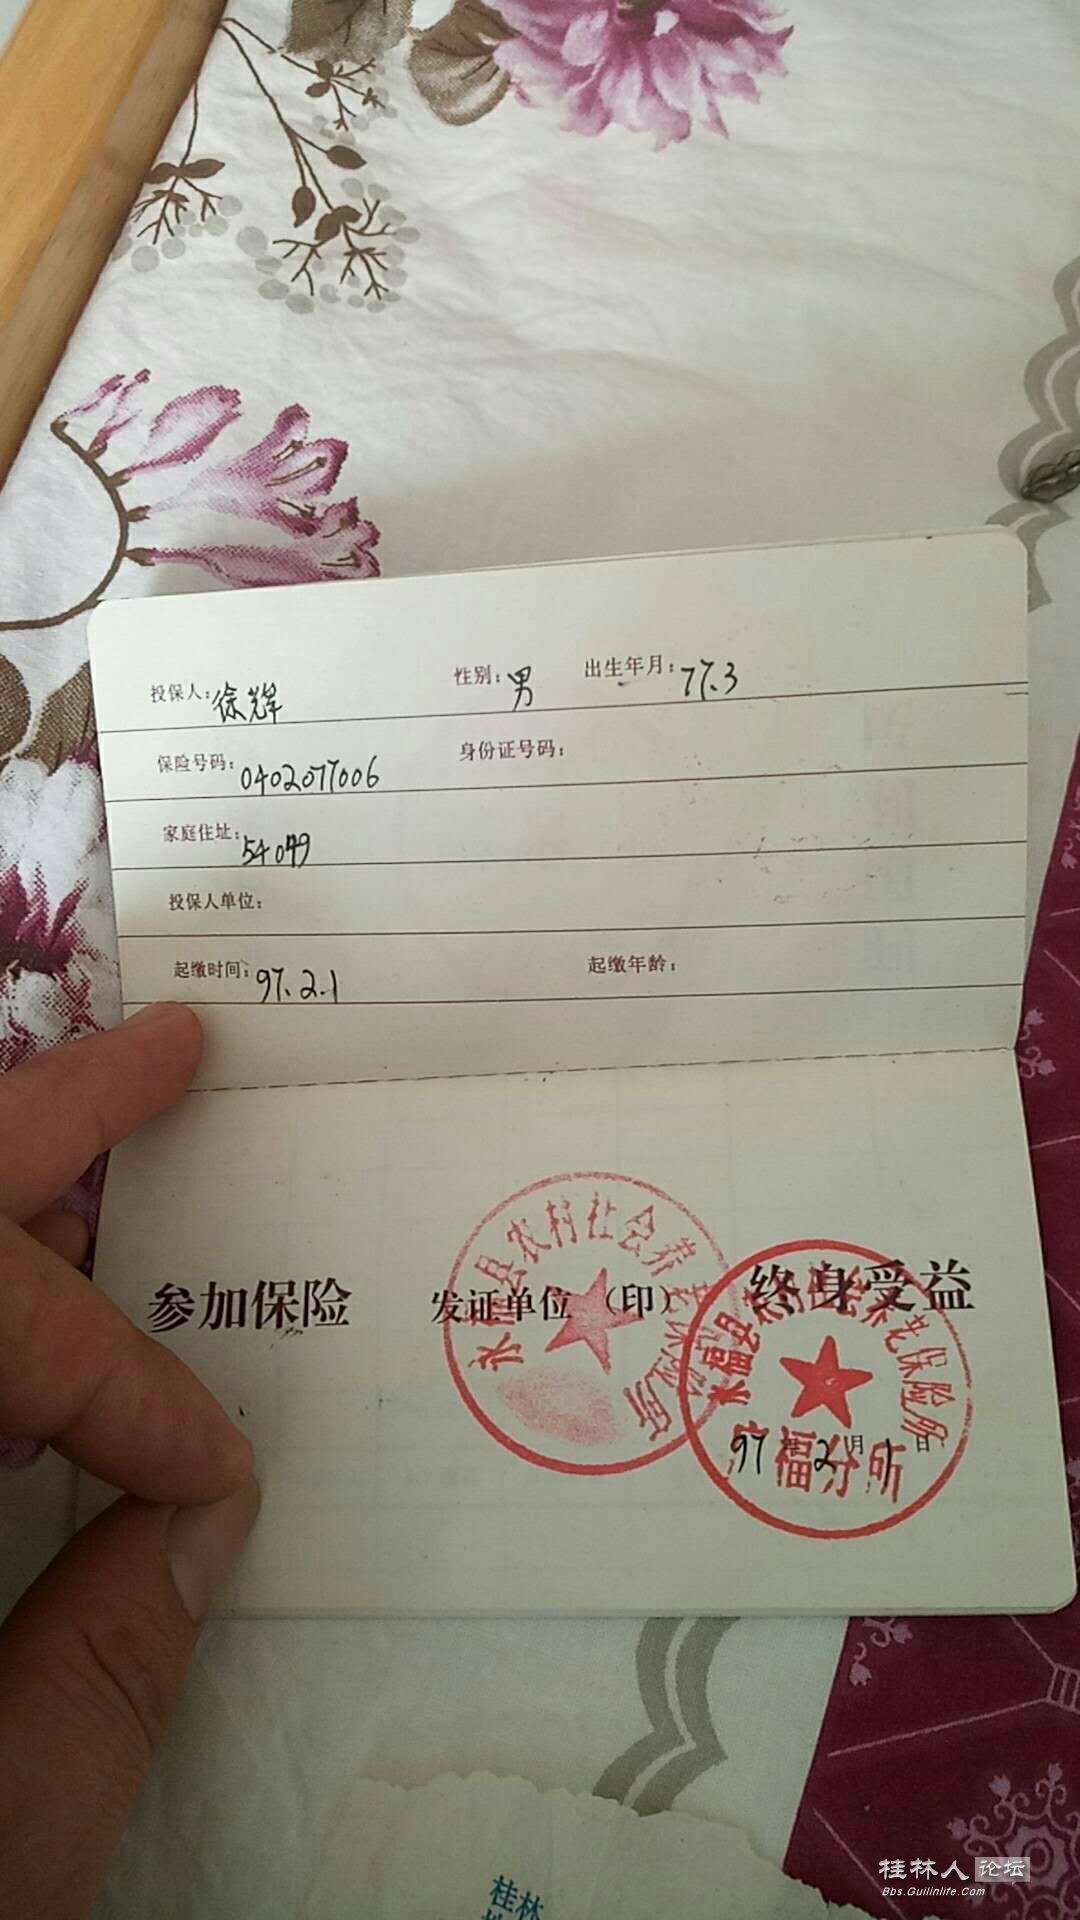 投保人：徐辉 性别：男 出生年月：77.3
保险号码：0402077006 身份证号码：
家庭住址：54049
投保人单位：
起缴时间：97.2.1 起缴年龄：
参加保险 发证单位（印） 终身受益
永福县农村社会养老保险所
永福县农村社会养老保险所
福分所
97年2月1日
桂林
桂林人论坛
Bbs.Guilinlife.Com